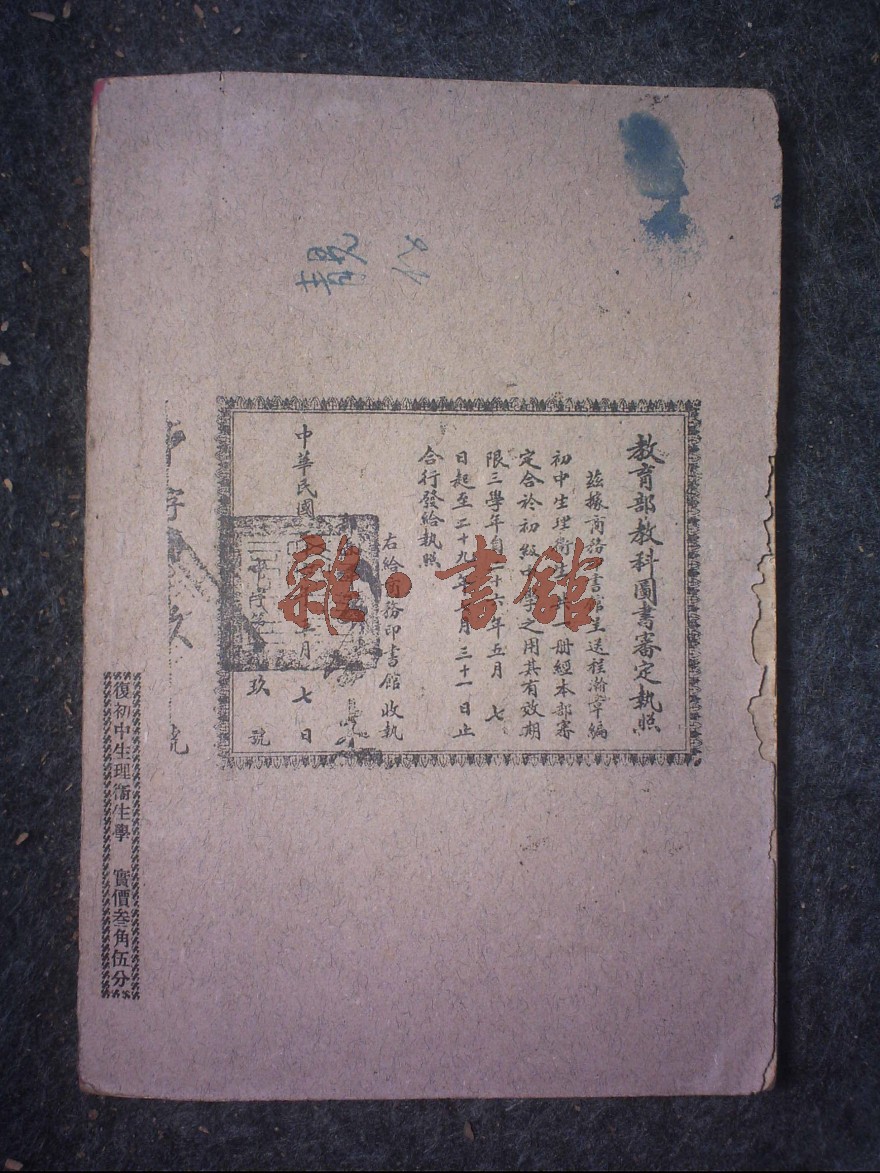 教育部教科圖書審定執照
茲據商務 書館呈送程瀚章編
初中生理衛生 冊經本部審
定合於初級中學之用其有效期
限三學年自二十六年五月七
日起至二十九年 月三十一日止
合行發給執照
右給商務印書館收執
中華民國 月七日
字第 玖號
字 號
復初中生理衛生學 實價叁角伍分
雜·書館